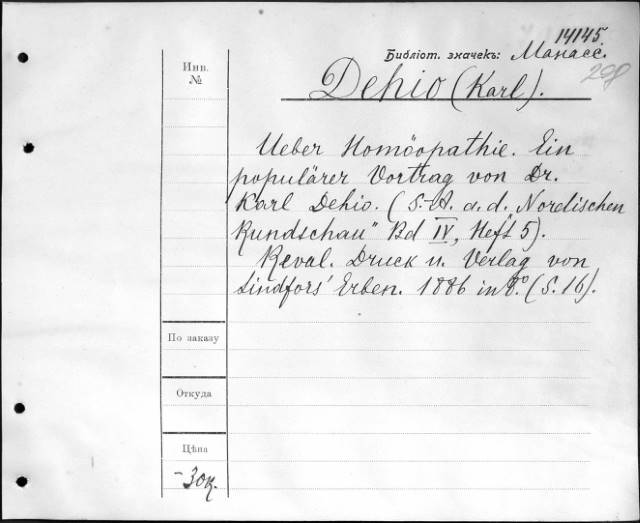 14145.
Библіот. значекъ: Манасс.
298
Инв.
№
Dehio (Karl).
Ueber Homöopathie. Ein
populärer Vortrag von Dr.
Karl Dehio. (S.-A. a. d. „Nordischen
Rundschau" Bd IV, Heft 5).
Reval. Druck u. Verlag von
Lindfors' Erben. 1886 in 8.° (S. 16).
По заказу
Откуда
Цѣна
-30к.